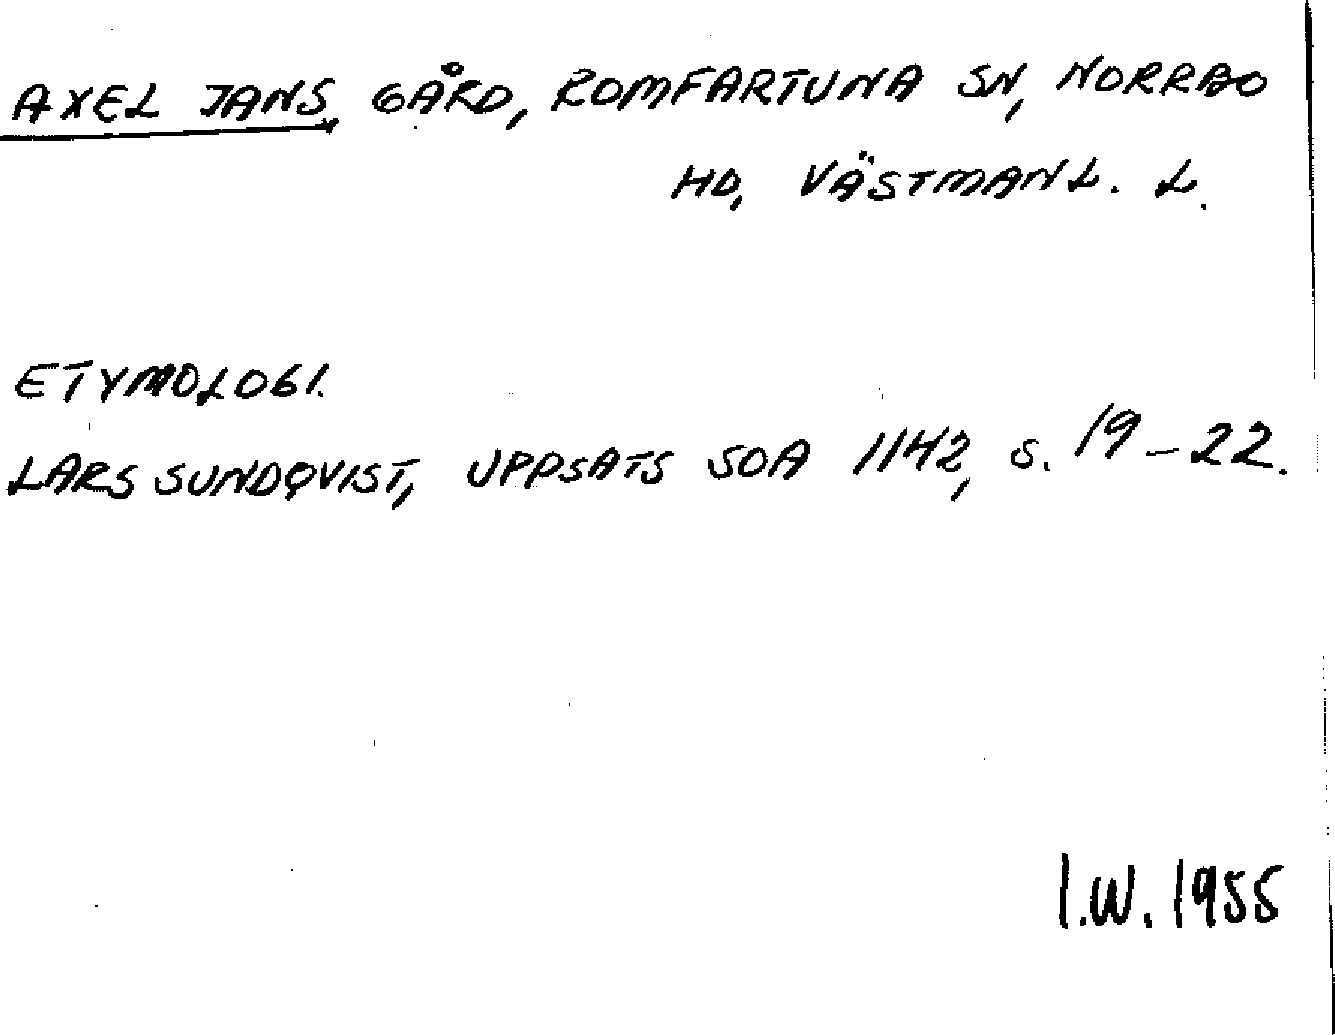 AXEL JANS, GÅRD, ROMFARTUNA SN, NORRBO
HD, VÄSTMANL. L.
ETYMOLOGI.
LARS SUNDQVIST, UPPSATS SOA 1142, S. 19-22.
I.W. 1955